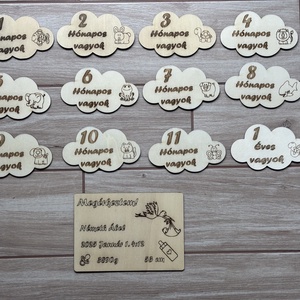 1
Hónapos
vagyok
2
Hónapos
vagyok
3
Hónapos
vagyok
4
Hónapos
vagyok
5
Hónapos
vagyok
6
Hónapos
vagyok
7
Hónapos
vagyok
8
Hónapos
vagyok
9
Hónapos
vagyok
10
Hónapos
vagyok
11
Hónapos
vagyok
1
Éves
vagyok
Megérkeztem!
Németh